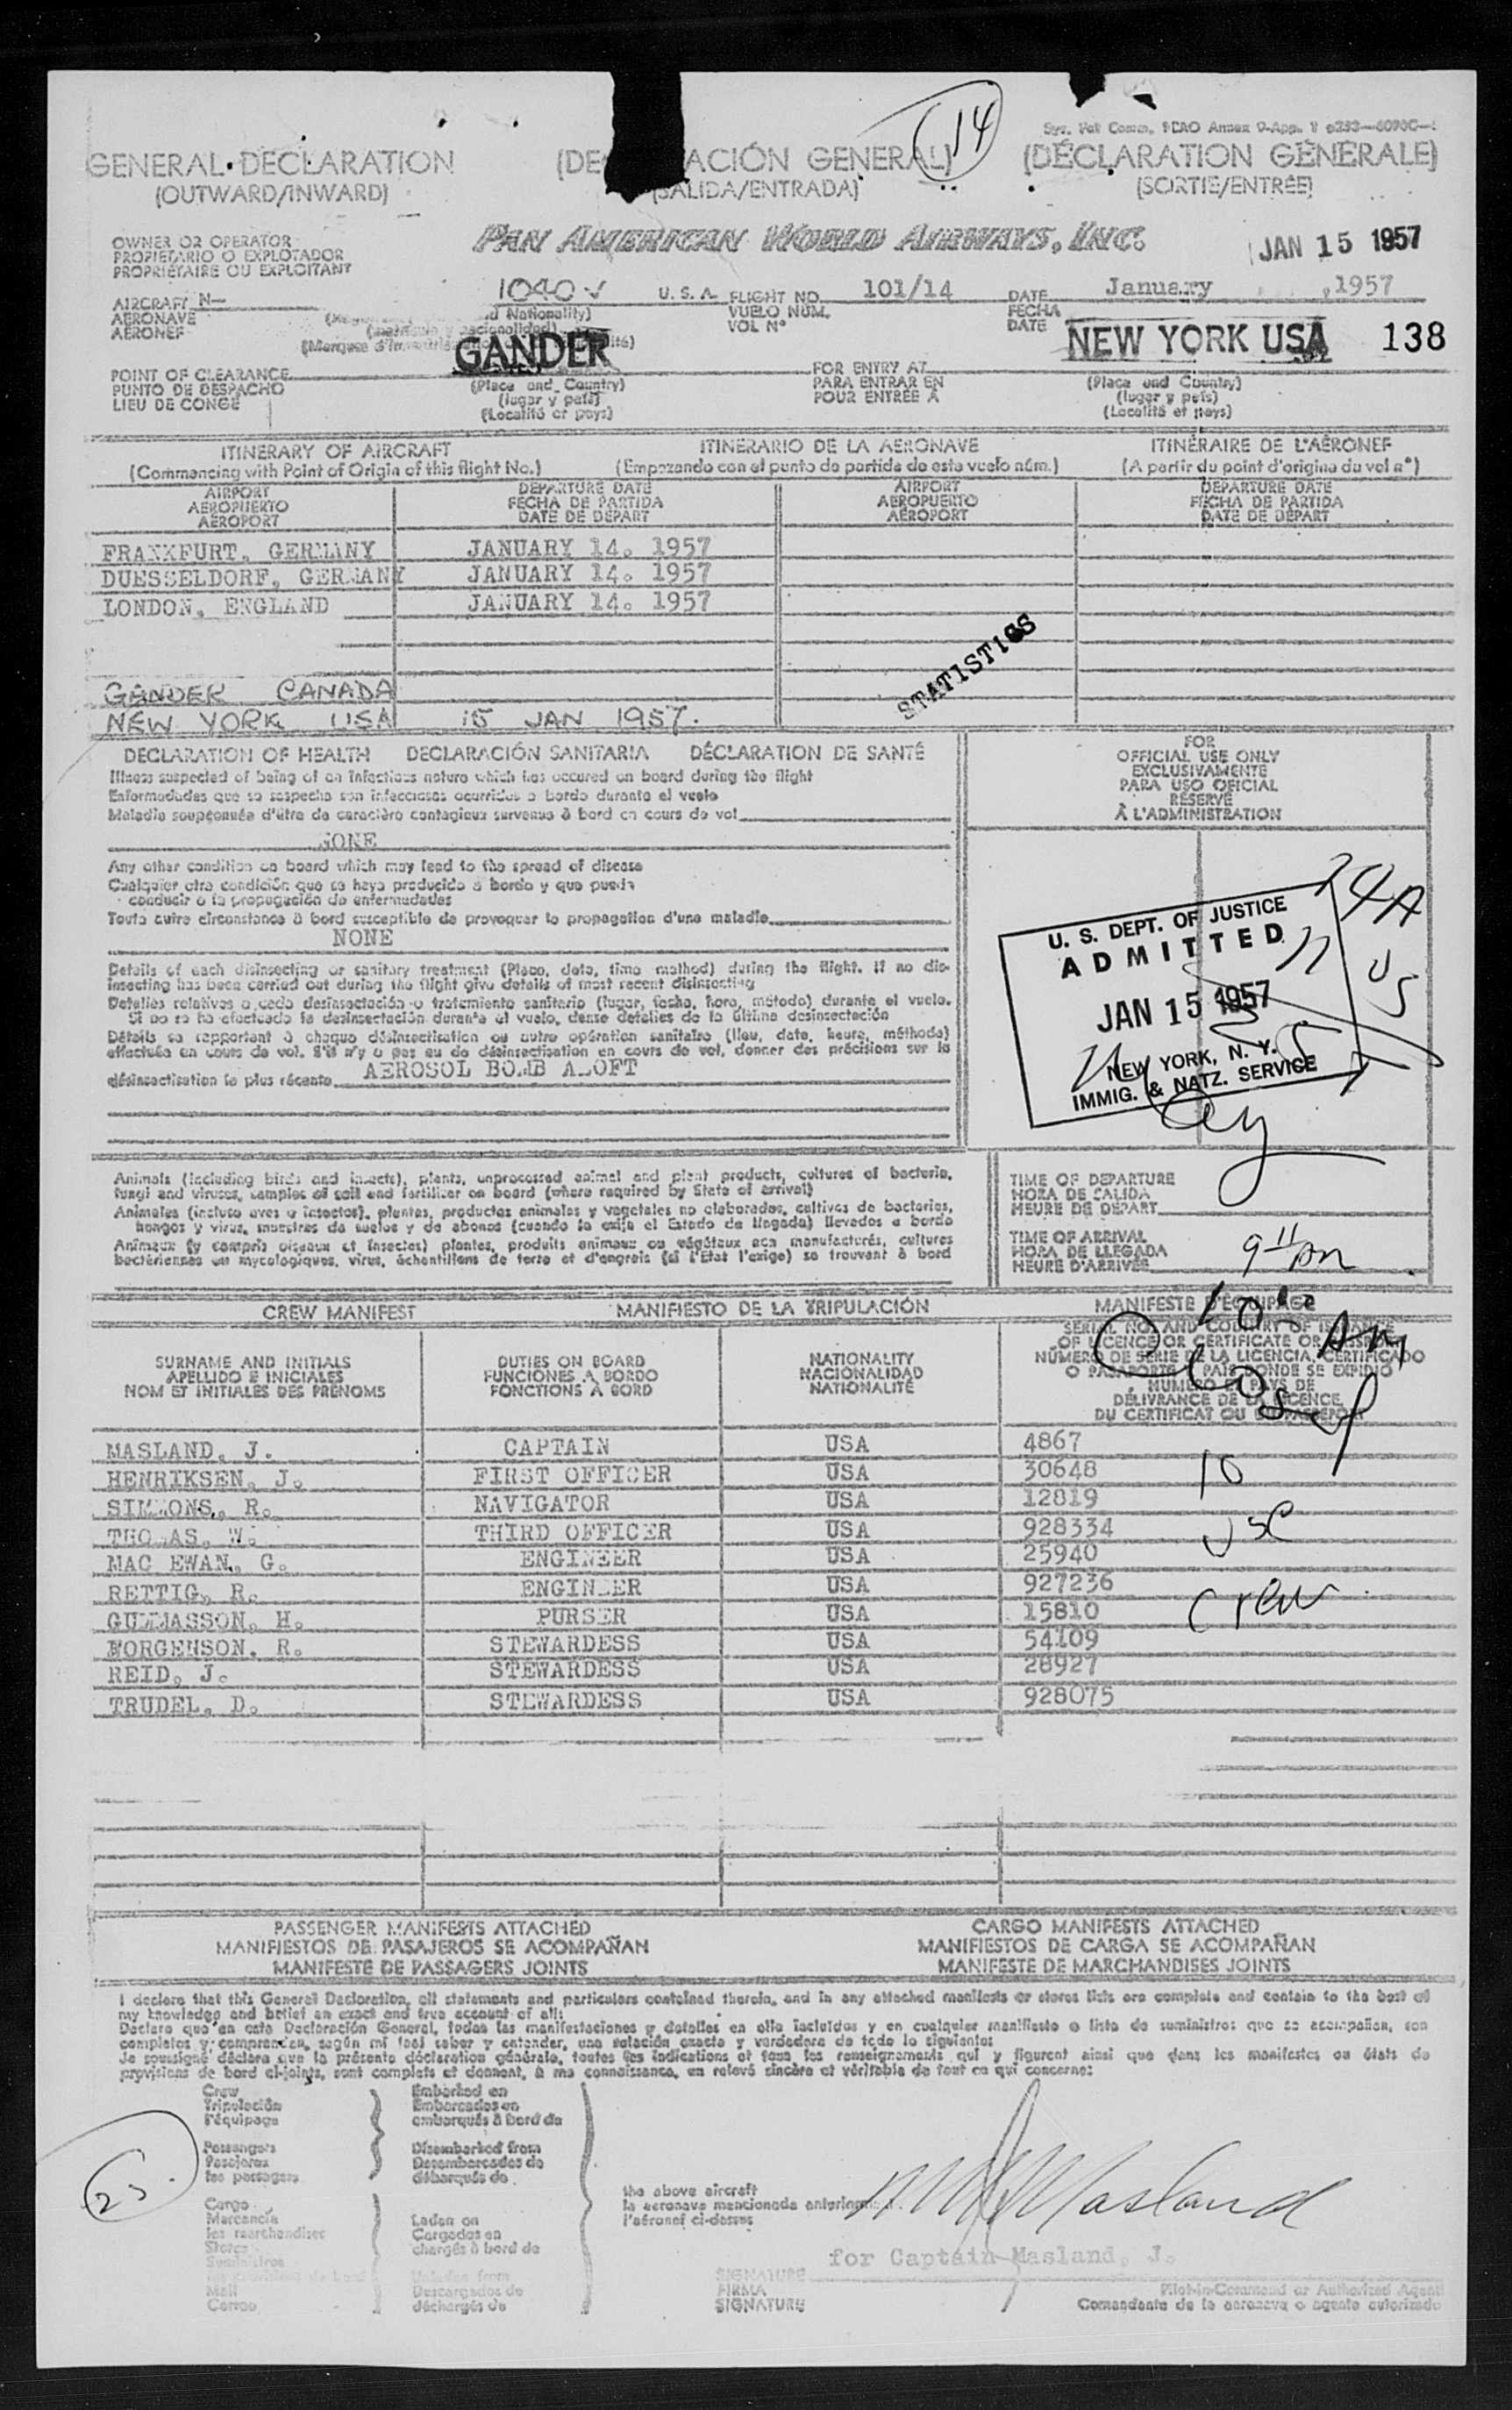 14
GENERAL DECLARATION
(OUTWARD/INWARD)
(DE ACIÓN GENERAL)
(SALIDA/ENTRADA)
(DÉCLARATION GÉNÉRALE)
(SORTIE/ENTRÉE)
OWNER OR OPERATOR
PROPIETARIO O EXPLOTADOR
PROPRIÉTAIRE OU EXPLOITANT
PAN AMERICAN WORLD AIRWAYS, INC.
JAN 15 1957
AIRCRAFT N— 1040 V U. S. A. FLIGHT NO. 101/14 DATE January ,1957
AERONAVE VUELO NÚM. FECHA
AÉRONEF VOL Nº DATE
GANDER
NEW YORK USA 138
POINT OF CLEARANCE FOR ENTRY AT
PUNTO DE DESPACHO (Place and Country) PARA ENTRAR EN (Place and Country)
LIEU DE CONGÉ (lugar y país) POUR ENTRÉE A (lugar y país)
(Localité et pays) (Localité et pays)
ITINERARY OF AIRCRAFT ITINERARIO DE LA AERONAVE ITINÉRAIRE DE L'AÉRONEF
(Commencing with Point of Origin of this flight No.) (Empezando con el punto de partida de este vuelo núm.) (A partir du point d'origine du vol nº)
AIRPORT DEPARTURE DATE AIRPORT DEPARTURE DATE
AEROPUERTO FECHA DE PARTIDA AEROPUERTO FECHA DE PARTIDA
AÉROPORT DATE DE DÉPART AÉROPORT DATE DE DÉPART
FRANKFURT, GERMANY JANUARY 14. 1957
DUESSELDORF, GERMANY JANUARY 14. 1957
LONDON, ENGLAND JANUARY 14. 1957
STATISTICS
GANDER CANADA
NEW YORK USA 15 JAN 1957.
DECLARATION OF HEALTH DECLARACIÓN SANITARIA DÉCLARATION DE SANTÉ
Illness suspected of being of an infectious nature which has occured on board during the flight
Enfermedades que se sospecha son infecciosas ocurridas a bordo durante el vuelo
Maladie soupçonnée d'être de caractère contagieux survenue à bord en cours de vol
NONE
Any other condition on board which may lead to the spread of disease
Cualquier otra condición que se haya producido a bordo y que pueda
conducir a la propagación de enfermedades
Toute autre circonstance à bord susceptible de provoquer la propagation d'une maladie
NONE
Details of each disinsecting or sanitary treatment (Place, date, time method) during the flight. If no dis-
insecting has been carried out during the flight give details of most recent disinsecting
Detalles relativos a cada desinsectación o tratamiento sanitario (lugar, fecha, hora, método) durante el vuelo.
Si no se ha efectuado la desinsectación durante el vuelo, dense detalles de la última desinsectación
Détails se rapportant à chaque désinsectisation ou autre opération sanitaire (lieu, date, heure, méthode)
effectuée en cours de vol. S'il n'y a pas eu de désinsectisation en cours de vol, donner des précisions sur la
désinsectisation la plus récente AEROSOL BOMB ALOFT
FOR
OFFICIAL USE ONLY
EXCLUSIVAMENTE
PARA USO OFICIAL
RÉSERVÉ
À L'ADMINISTRATION
U. S. DEPT. OF JUSTICE
ADMITTED
JAN 15 1957
NEW YORK, N. Y.
IMMIG. & NATZ. SERVICE
Animals (including birds and insects), plants, unprocessed animal and plant products, cultures of bacteria,
fungi and viruses, samples of soil and fertilizer on board (where required by State of arrival)
Animales (incluso aves e insectos), plantas, productos animales y vegetales no elaborados, cultivos de bacterias,
hongos y virus, muestras de suelos y de abonos (cuando lo exija el Estado de llegada) llevados a bordo
Animaux (y compris oiseaux et insectes) plantes, produits animaux ou végétaux non manufacturés, cultures
bactériennes ou mycologiques, virus, échantillons de terre et d'engrais (si l'Etat l'exige) se trouvant à bord
TIME OF DEPARTURE
HORA DE SALIDA
HEURE DE DÉPART
TIME OF ARRIVAL
HORA DE LLEGADA
HEURE D'ARRIVÉE
CREW MANIFEST MANIFIESTO DE LA TRIPULACIÓN MANIFESTE D'ÉQUIPAGE
SURNAME AND INITIALS DUTIES ON BOARD NATIONALITY
APELLIDO E INICIALES FUNCIONES A BORDO NACIONALIDAD
NOM ET INITIALES DES PRÉNOMS FONCTIONS À BORD NATIONALITÉ
MASLAND, J. CAPTAIN USA 4867
HENRIKSEN, J. FIRST OFFICER USA 30648 10
SIMMONS, R. NAVIGATOR USA 12819
THOMAS, W. THIRD OFFICER USA 928334 USC
MAC EWAN, G. ENGINEER USA 25940
RETTIG, R. ENGINEER USA 927236 crew
GUDJASSON, H. PURSER USA 15810
NORGENSON, R. STEWARDESS USA 54109
REID, J. STEWARDESS USA 28927
TRUDEL, D. STEWARDESS USA 928075
PASSENGER MANIFESTS ATTACHED CARGO MANIFESTS ATTACHED
MANIFIESTOS DE PASAJEROS SE ACOMPAÑAN MANIFIESTOS DE CARGA SE ACOMPAÑAN
MANIFESTE DE PASSAGERS JOINTS MANIFESTE DE MARCHANDISES JOINTS
I declare that this General Declaration, all statements and particulars contained therein, and in any attached manifests or stores lists are complete and contain to the best of
my knowledge and belief an exact and true account of all:
Declaro que en esta Declaración General, todas las manifestaciones y detalles en ella incluídos y en cualquier manifiesto o lista de suministros que se acompañan, son
completos y comprenden, según mi leal saber y entender, una relación exacta y verdadera de todo lo siguiente:
Je soussigné déclare que la présente déclaration générale, toutes les indications et tous les renseignements qui y figurent ainsi que dans les manifestes ou états de
provisions de bord ci-joints, sont complets et donnent, à ma connaissance, un relevé sincère et véritable de tout ce qui concerne:
Crew Embarked on
Tripulación Embarcados en
l'équipage embarqués à bord de
Passengers Disembarked from
Pasajeros Desembarcados de
les passagers débarqués de
Cargo the above aircraft
Mercancía Laden on la aeronave mencionada anteriormente
les marchandises Cargados en l'aéronef ci-dessus
Stores chargés à bord de
Masland
for Captain Masland, J.
Mail Descargados de SIGNATURE
Correo déchargés de FIRMA
SIGNATURE
Pilot-in-Command or Authorized Agent
Comandante de la aeronave o agente autorizado